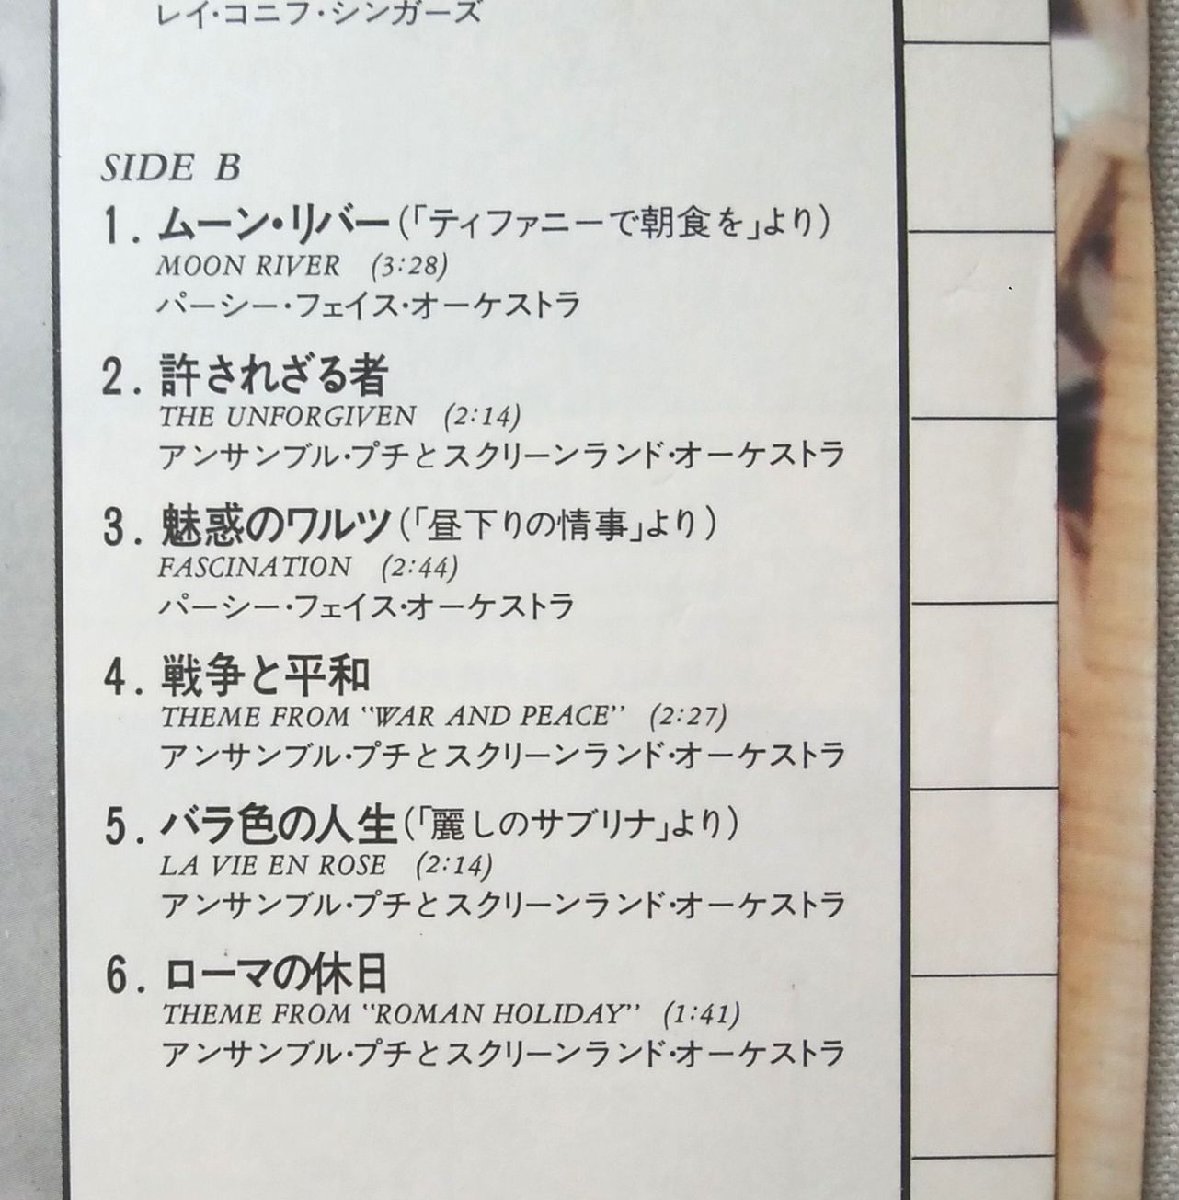 レイ・コニフ・シンガーズ
SIDE B
1. ムーン・リバー(「ティファニーで朝食を」より)
MOON RIVER (3:28)
パーシー・フェイス・オーケストラ
2. 許されざる者
THE UNFORGIVEN (2:14)
アンサンブル・プチとスクリーンランド・オーケストラ
3. 魅惑のワルツ(「昼下りの情事」より)
FASCINATION (2:44)
パーシー・フェイス・オーケストラ
4. 戦争と平和
THEME FROM "WAR AND PEACE" (2:27)
アンサンブル・プチとスクリーンランド・オーケストラ
5. バラ色の人生(「麗しのサブリナ」より)
LA VIE EN ROSE (2:14)
アンサンブル・プチとスクリーンランド・オーケストラ
6. ローマの休日
THEME FROM "ROMAN HOLIDAY" (1:41)
アンサンブル・プチとスクリーンランド・オーケストラ